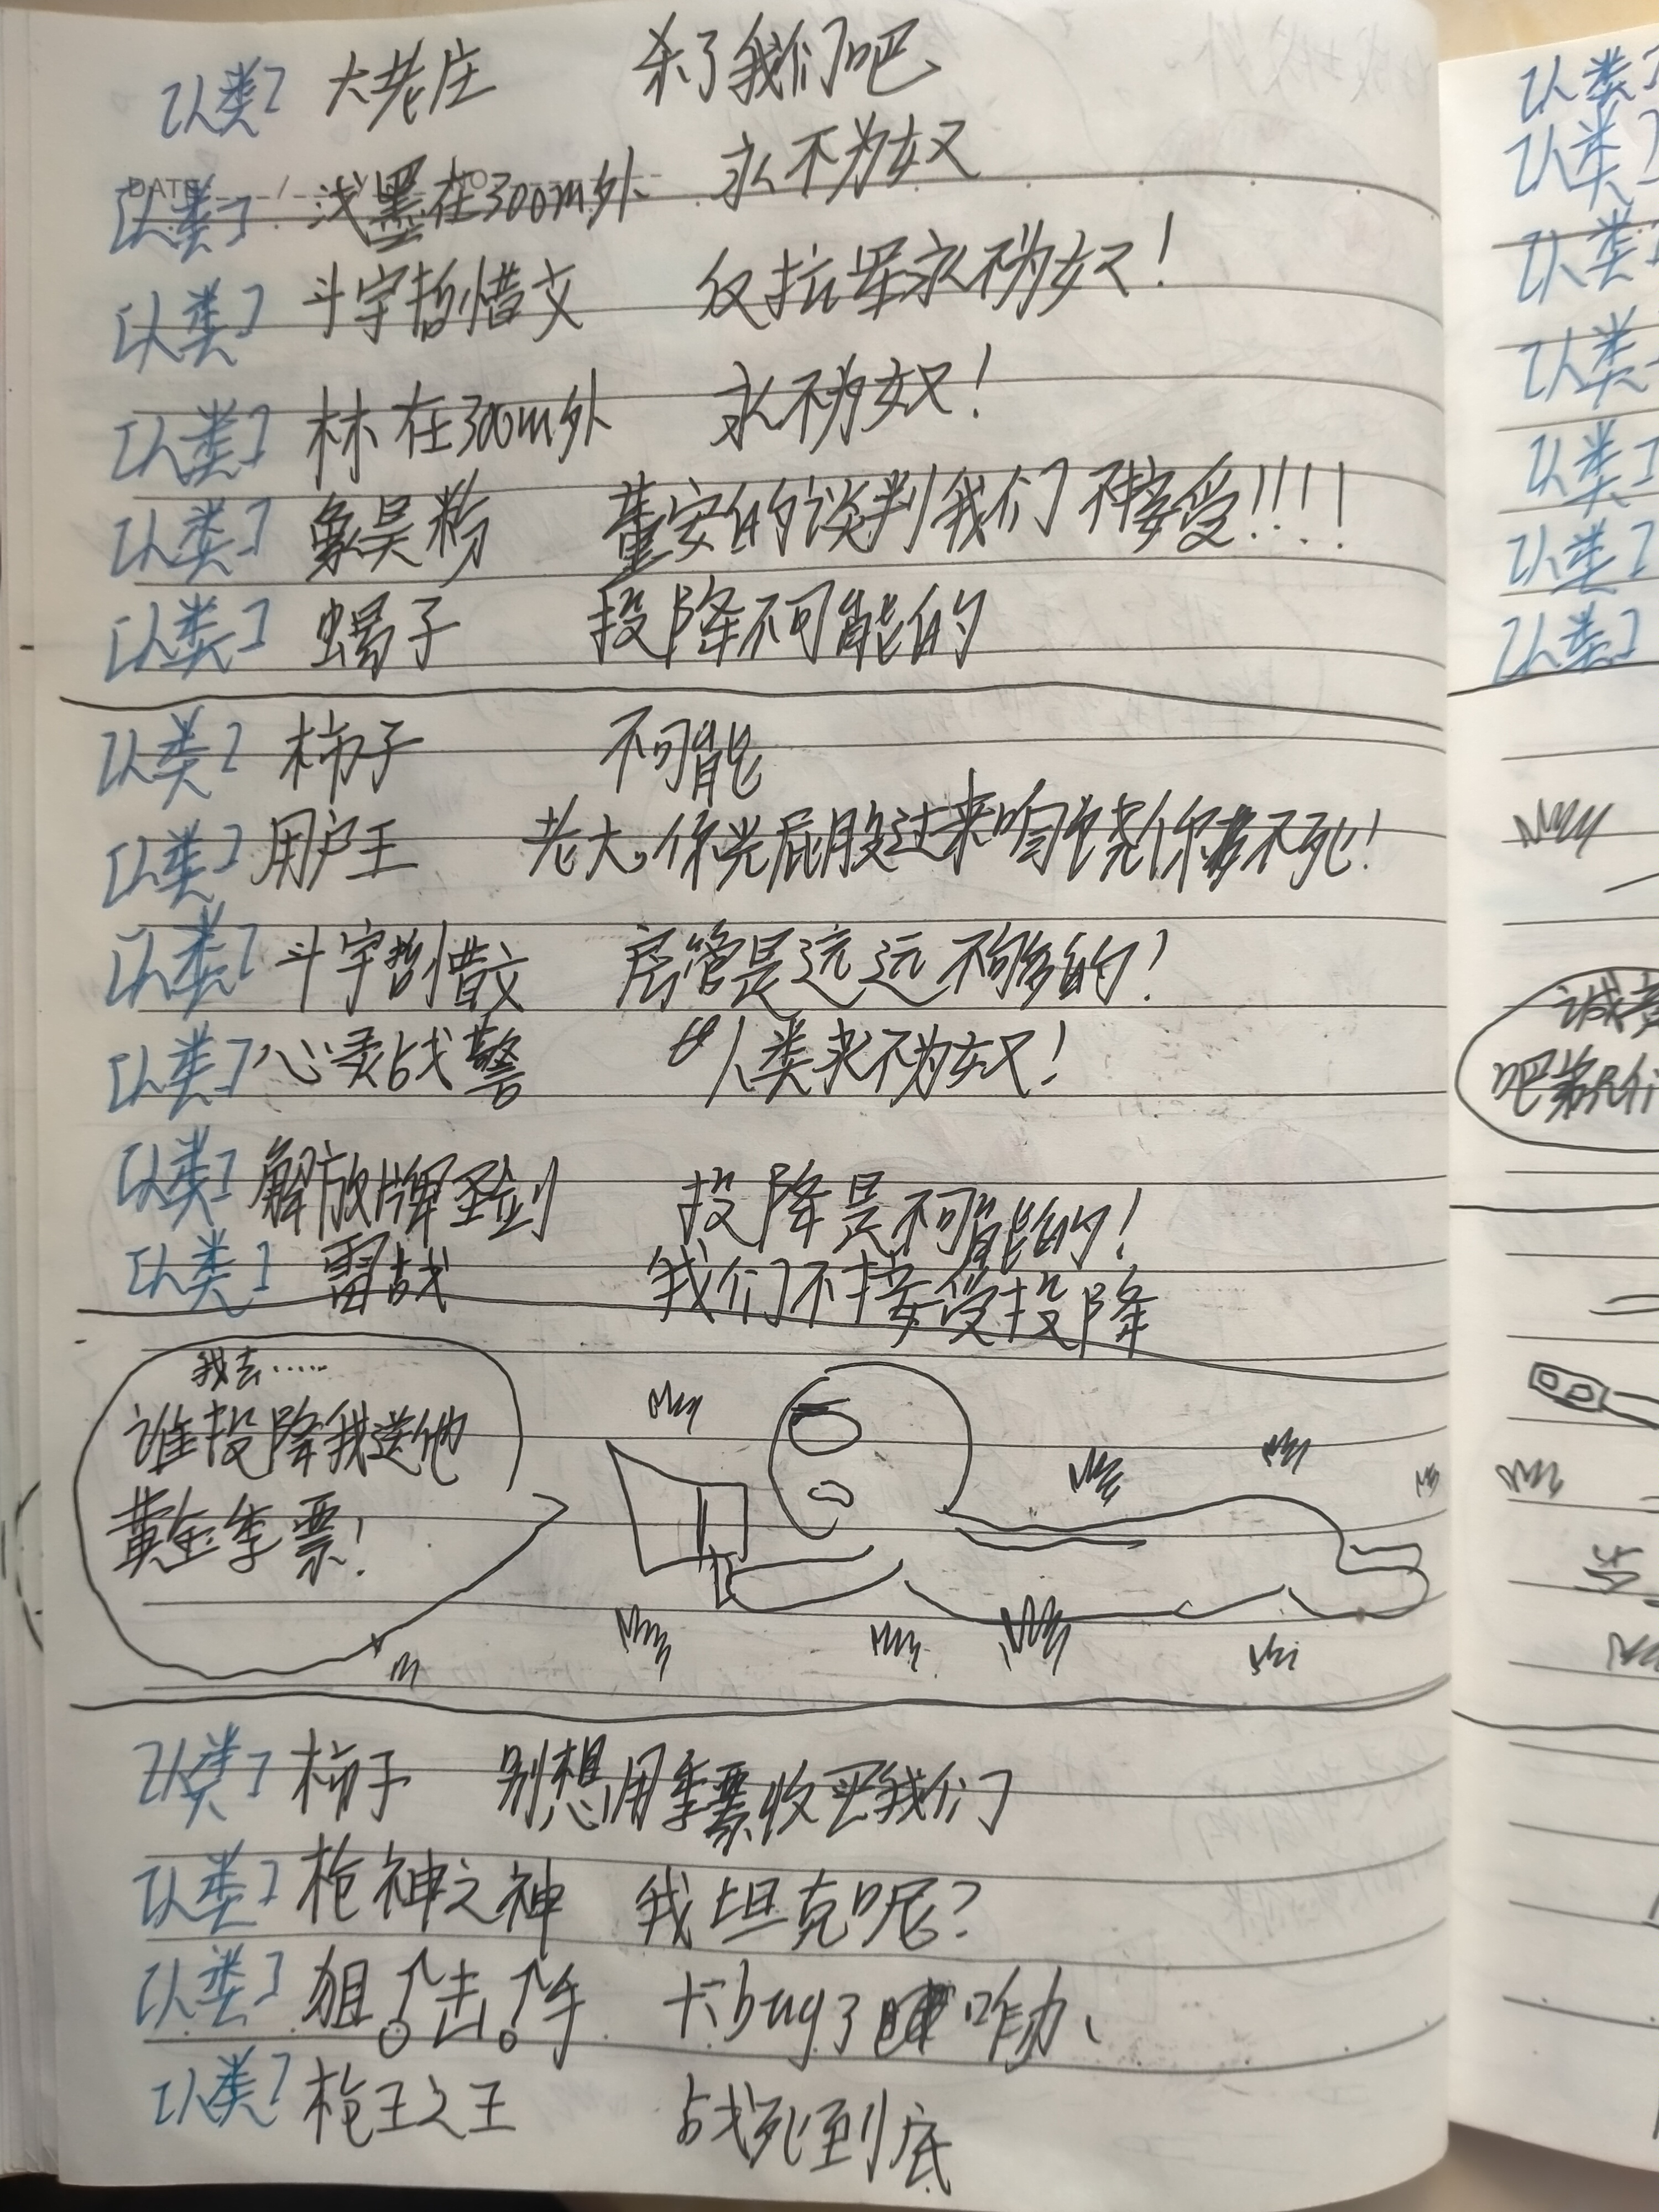 [人类] 大老庄 杀了我们吧、
DATE / NO
[人类] 浅墨在300m外 永不为奴
[人类] 斗宇哲惜文 反抗军永不为奴!
[人类] 林在300m外 永不为奴!
[人类] 象昊粉 董安的谈判我们不接受!!!!
[人类] 蝎子 投降不可能的
[人类] 柿子 不可能
[人类] 用户王 老大,你光屁股过来吻 饶你不死!
[人类] 斗宇哲惜文 房管是远远不够的!
[人类] 心灵战警 人类永不为奴!
[人类] 解放牌圣剑 投降是不可能的!
[人类] 雷战 我们不接受投降
我去……
谁投降我送他
黄金季票!
[人类] 柿子 别想用季票收买我们
[人类] 枪神之神 我坦克呢?
[人类] 狙 击 手 卡bug了 咋办、
[人类] 枪王之王 战死到底
[人类]
[人类]
[人类]
[人类]
[人类]
[人类]
[人类]
诚意
吧弟兄们